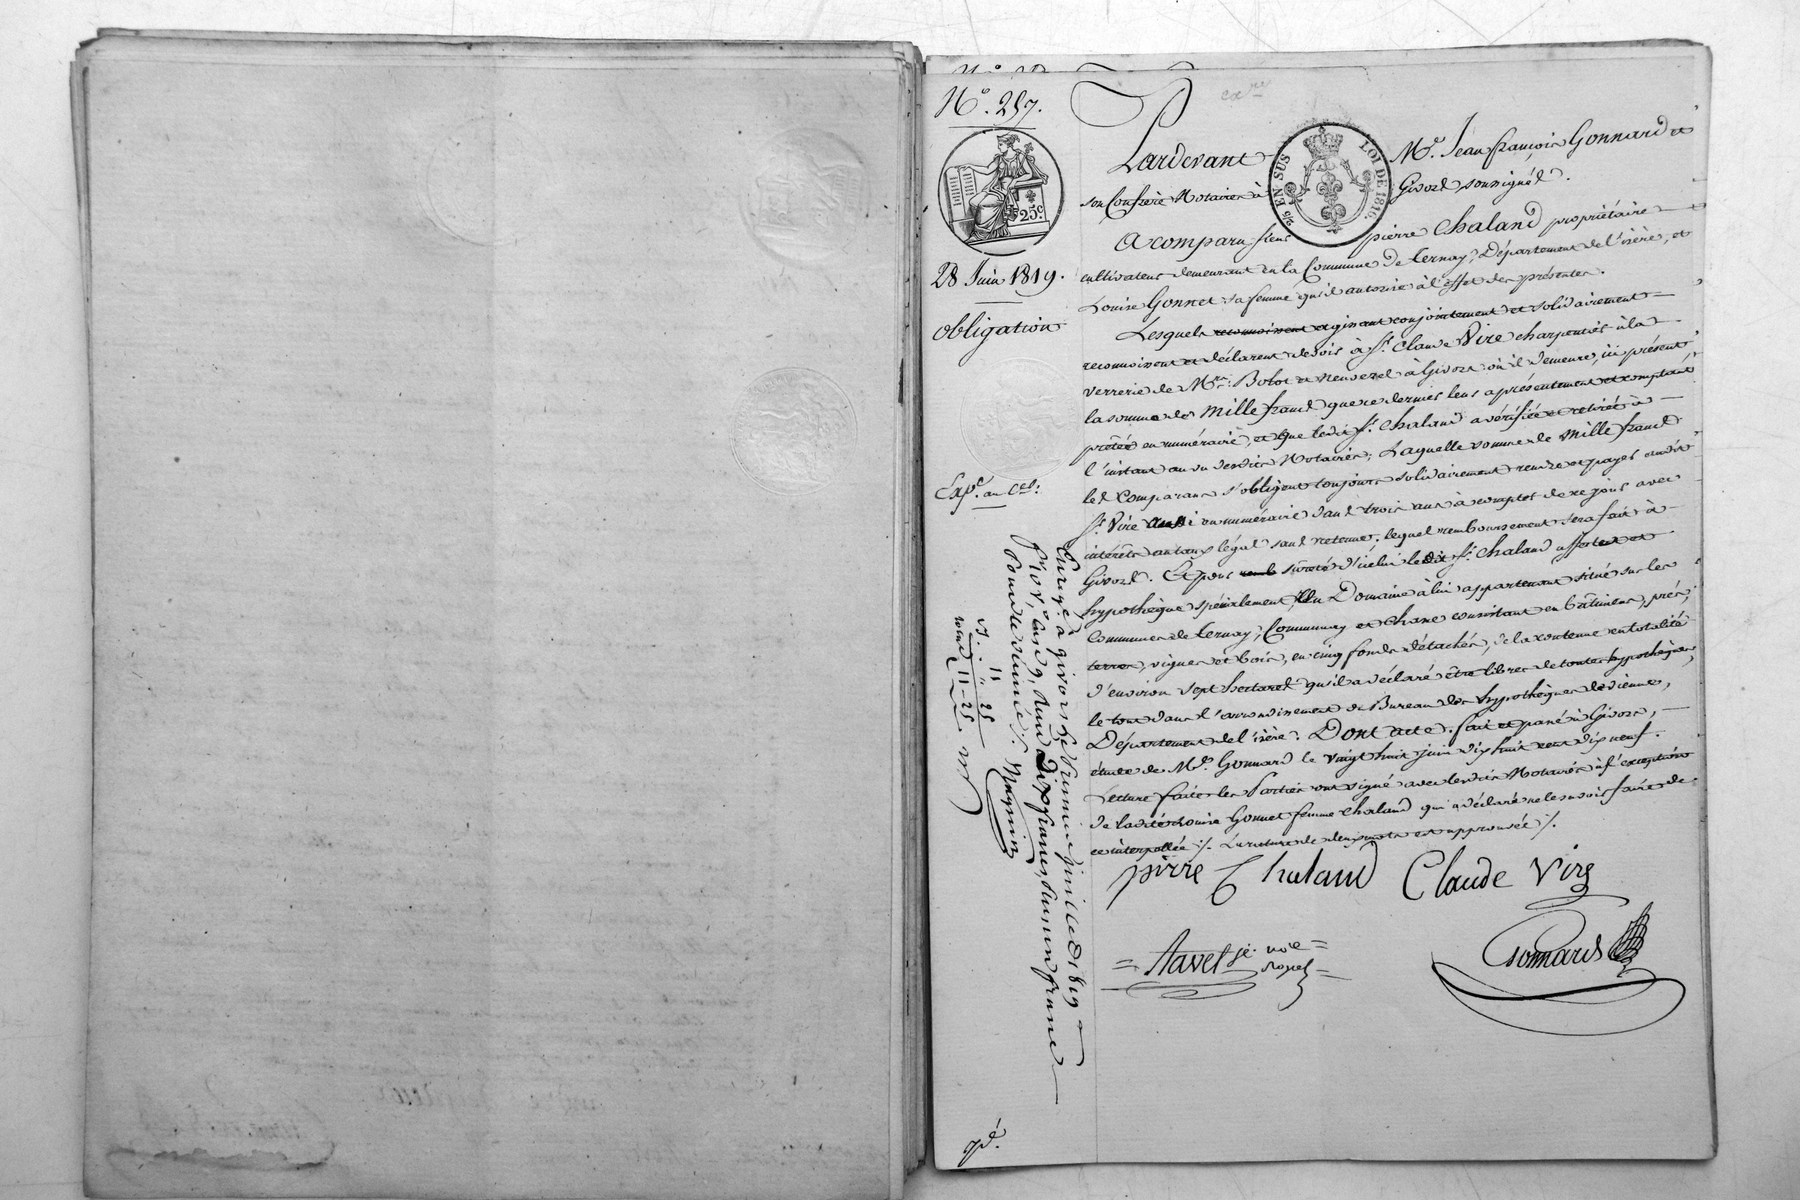 N.° 257.
25 c.
28 Juin 1819.
obligation
Exp.e au Cer.
2/5 EN SUS
LOI DE 1816.
Pardevant M.e Jean françois Gonnard et
son Confrère Notaires à Givors soussignés.
A comparu sieur pierre Chaland propriétaire
cultivateur demeurant en la Commune de Ternay, Département de l'isère, et
Louise Gonnet sa femme qu'il autorise à l'effet des présentes.
Lesquels reconnoissent et agissant conjointement et solidairement
reconnoissent et déclarent devoir à S.r Claude Vire charpentier à la
verrerie de M.rs Bolot et neuvesel à Givors où il demeure, ici présent,
la somme de Mille francs que ce dernier leur a présentement et comptant
prêtée en numéraire, et que ledit S.r Chaland a vérifiée et retirée à
l'instant au vu desdits Notaires; Laquelle somme de Mille francs
les Comparans s'obligent toujours solidairement rendre et payer audit
S.r Vire aussi en numéraire dans trois ans à compter de ce jour avec
intérêts au taux légal sans retenue, lequel remboursement sera fait à
Givors. Et pour sûreté d'icelui ledit S.r Chaland affecte et
hypothèque spécialement, Un Domaine à lui appartenant situé sur les
communes de Ternay, Communay et Chane consistant en bâtimens, prés,
terres, vignes et bois, en cinq fonds détachés, de la contenue en totalité
d'environ sept hectares qu'il a déclaré être libres de toutes hypothèques
le tout dans l'arrondissement du Bureau des hypothèques de vienne,
Département de l'isère. Dont acte. fait et passé à Givors,
étude de M.e Gonnard le vingt huit juin dix huit cent dix neuf.
Lecture faite les Parties ont signé avec lesdits Notaires à l'exception
de ladite Louise Gonnet femme Chaland qui a déclaré ne le savoir faire de
ce interpellée ./. La rature de deux mots est approuvée ./.
pierre Chaland Claude Vire
Navel je. no.re royal
Gonnard
Enregé à givors le premier juillet 1819 f.o
Reçu dix francs, plus un franc
pour le dixième. Magnin
11
11 - 25